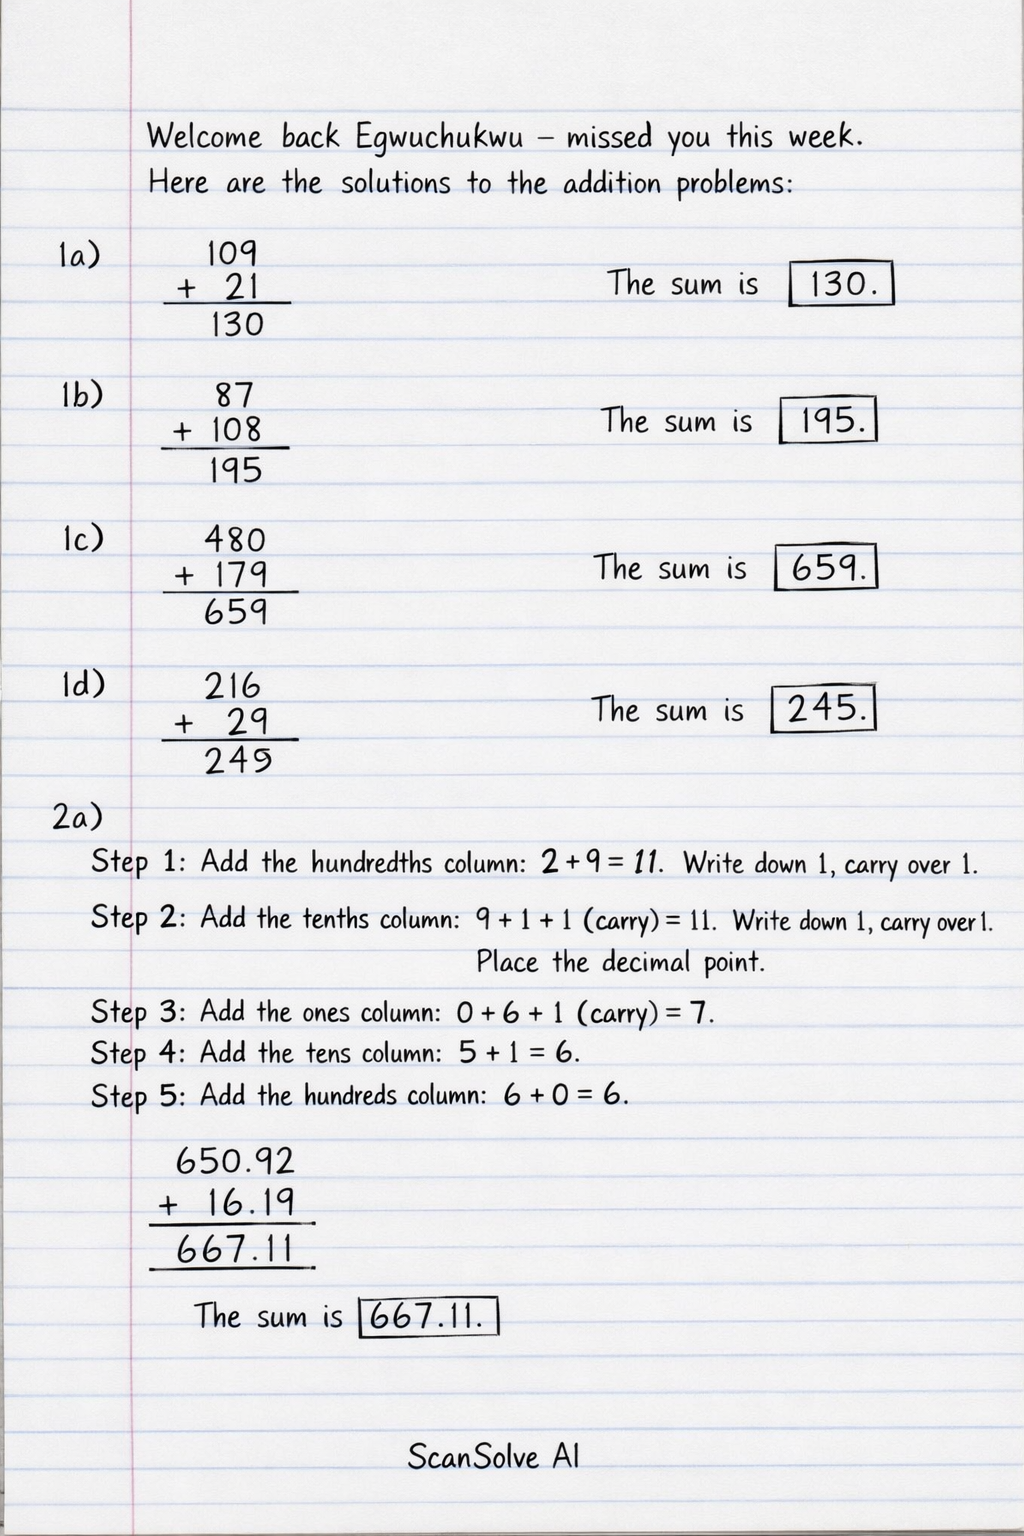 Welcome back Egwuchukwu – missed you this week.
Here are the solutions to the addition problems:
1a)
109
+ 21
130
The sum is 130.
1b)
87
+ 108
195
The sum is 195.
1c)
480
+ 179
659
The sum is 659.
1d)
216
+ 29
245
The sum is 245.
2a)
Step 1: Add the hundredths column: 2 + 9 = 11. Write down 1, carry over 1.
Step 2: Add the tenths column: 9 + 1 + 1 (carry) = 11. Write down 1, carry over 1.
Place the decimal point.
Step 3: Add the ones column: 0 + 6 + 1 (carry) = 7.
Step 4: Add the tens column: 5 + 1 = 6.
Step 5: Add the hundreds column: 6 + 0 = 6.
650.92
+ 16.19
667.11
The sum is 667.11.
ScanSolve AI